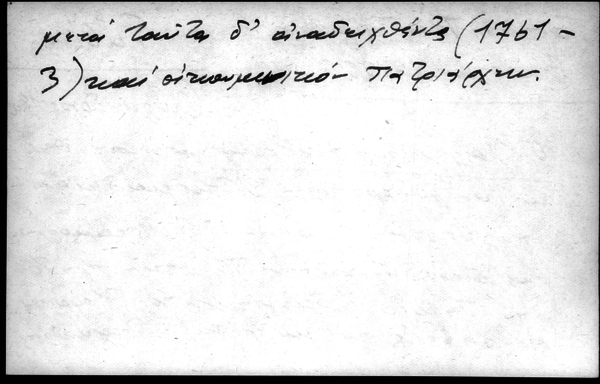 μετά ταῦτα δ' ἀναδειχθέντα (1761-
3) καί οἰκουμενικόν Πατριάρχην.